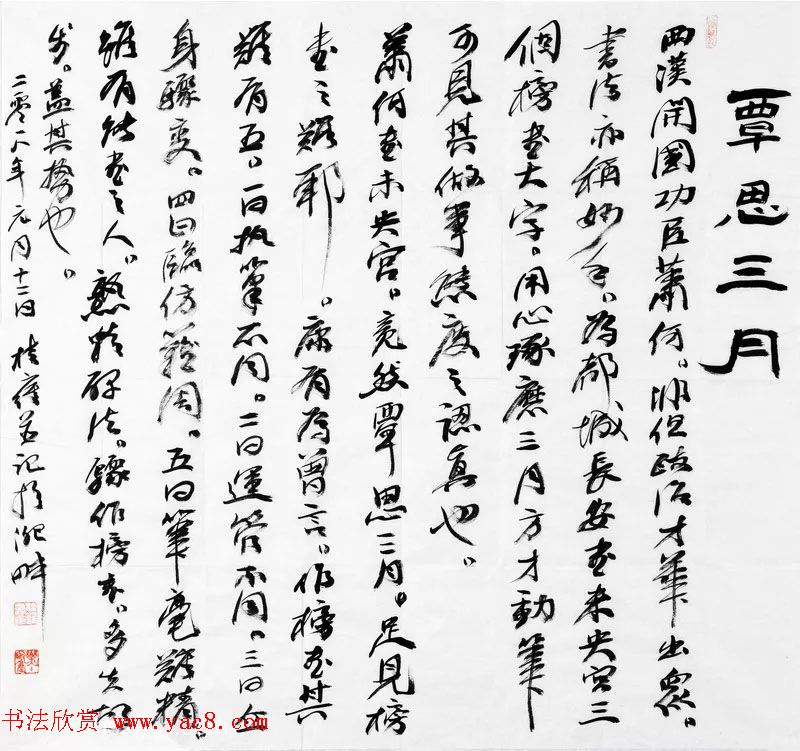 覃思三月
西漢開國功臣蕭何。非但政治才華出眾。
書法亦稱妙手。為都城長安書未央宮三
個榜書大字。用心琢磨三月方才動筆
可見其做事態度之認真也。
蕭何書未央宮。竟然覃思三月。足見榜
書之難耶。康有為曾言。作榜書其
難有五。一曰執筆不同。二曰運管不同。三曰立
身驟變。四曰臨仿難周。五曰筆毫難精。
雖有能書之人。熟精碑法。驟作榜書。多失故
步。蓋其勢也。
二零一八年元月十二日 桂雍并記於淝畔
书法欣赏 www.yac8.com